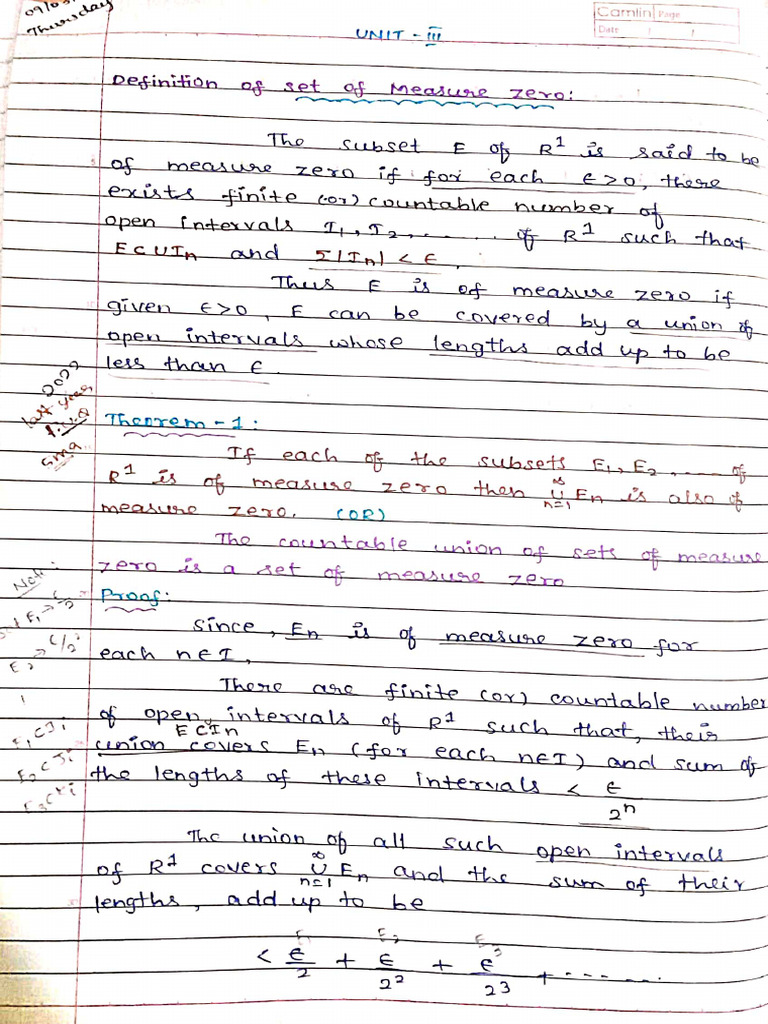 Thursday
Camlin Page
Date / /
UNIT - III
Definition of set of Measure zero:
The subset E of R¹ is said to be
of measure zero if for each ϵ>0, there
exists finite (or) countable number of
open intervals I₁, I₂, ....... of R¹ such that
E⊂∪Iₙ and Σ|Iₙ| < ϵ.
Thus E is of measure zero if
given ϵ>0, E can be covered by a union of
open intervals whose lengths add up to be
less than ϵ.
2022
last year
5m
Theorem - 1:
If each of the subsets E₁, E₂, ...... of
R¹ is of measure zero then ∞∪n=1 Eₙ is also of
measure zero. (OR)
The countable union of sets of measure
zero is a set of measure zero
Proof:
Since, Eₙ is of measure zero for
each n∈I,
There are finite (or) countable number
of open intervals of R¹ such that, their
E⊂Iₙ
union covers Eₙ (for each n∈I) and sum of
the lengths of these intervals < ϵ/2ⁿ
The union of all such open intervals
of R¹ covers ∞∪n=1 Eₙ and the sum of their
lengths, add up to be
E₁ E₂ E₃
< ϵ/2 + ϵ/2² + ϵ/2³ + .......